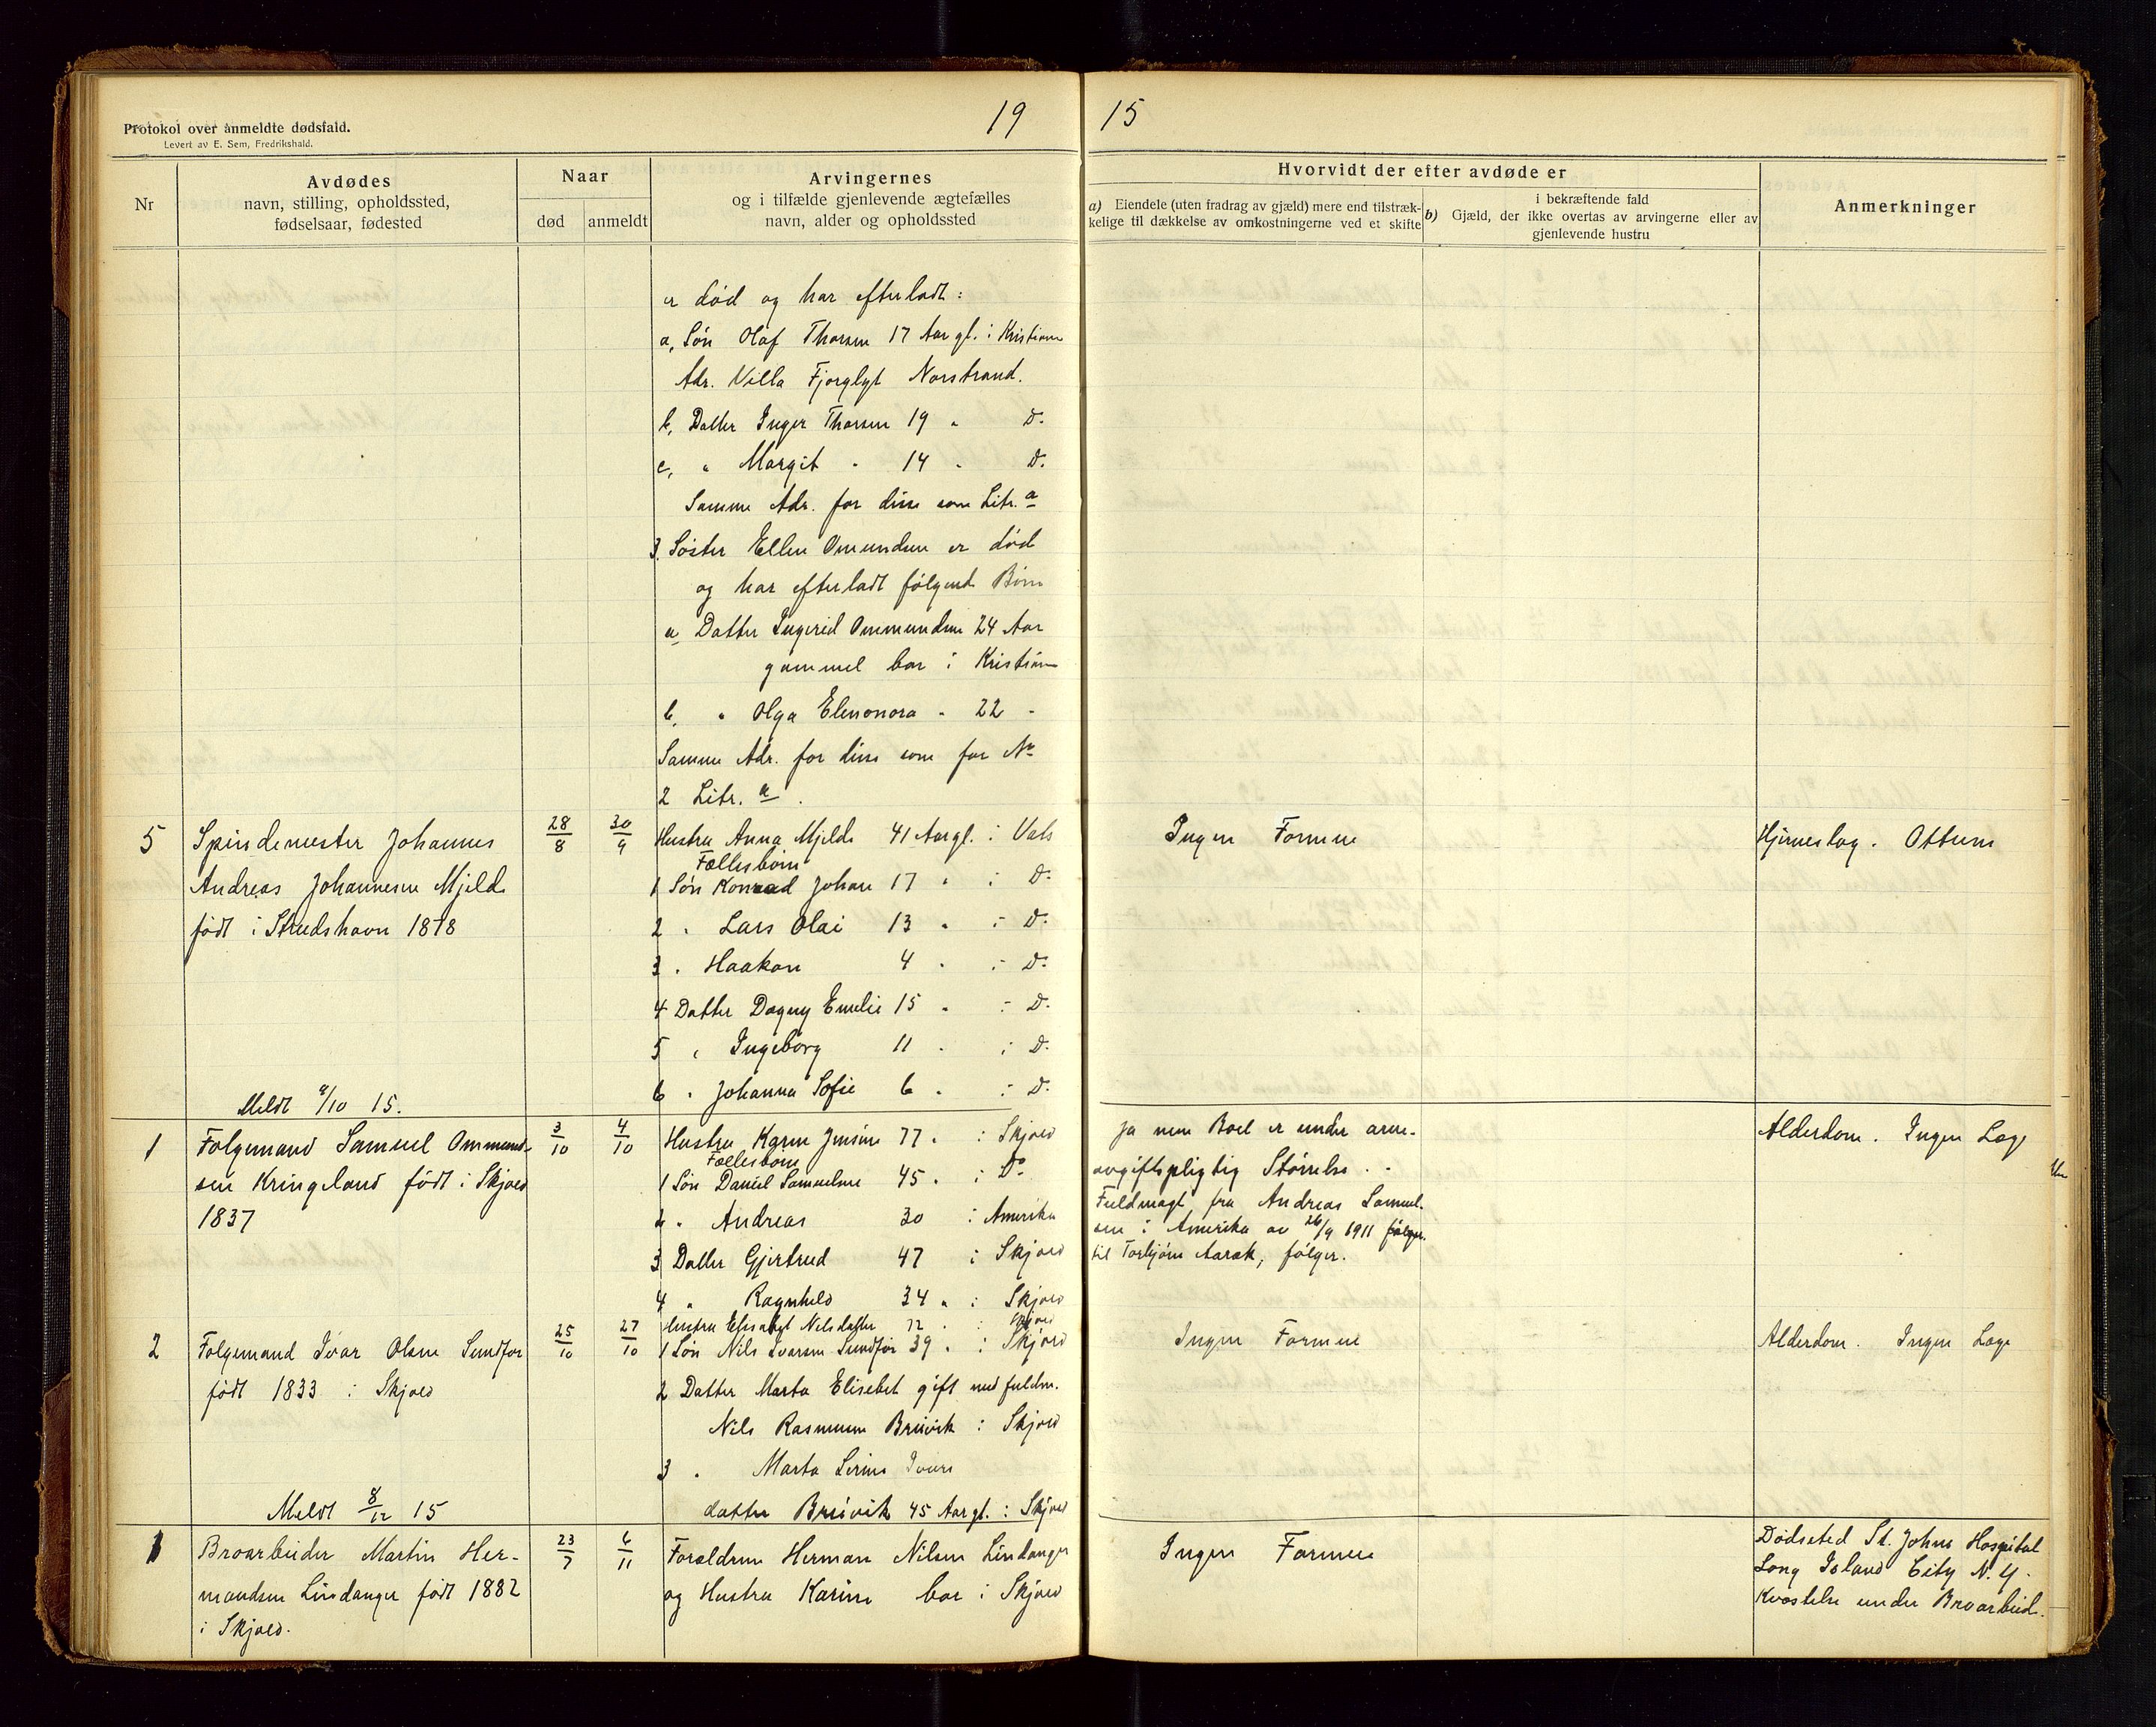 Protokol over anmeldte dødsfald.
Levert av E. Sem, Fredrikshald.
19
15
Nr
Avdødes
navn, stilling, opholdssted,
fødselsaar, fødested
Naar
død
anmeldt
Arvingernes
og i tilfælde gjenlevende ægtefælles
navn, alder og opholdssted
Hvorvidt der efter avdøde er
a) Eiendele (uten fradrag av gjæld) mere end tilstræk-
kelige til dækkelse av omkostningerne ved et skifte
i bekræftende fald
b) Gjæld, der ikke overtas av arvingerne eller av
gjenlevende hustru
Anmerkninger
er død og har efterladt:
a, Søn Olaf Thorsen 17 Aar gl. i Kristiania
Adr. Villa Fjorglyt Norstrand.
b, Datter Inger Thorsen 19 " D.
c, " Margit " 14 " D.
Samme Adr. for disse som Litr. a
3. Søster Ellen Omundsen er død
og har efterladt følgende Børn
a Datter Ingerid Ommundsen 24 Aar
gammel bor i Kristiania
b, " Olga Elenonora " 22 "
Samme Adr. for disse som for Nr
2 Litr. a.
5
Spindemester Johannes
Andreas Johannesen Mjelde
født i Strudshavn 1878
28/8
30/9
Hustru Anna Mjelde 41 Aar gl. i Vats
Fællesbørn
1 Søn Konrad Johan 17 " i D.
2 " Lars Olai 13 " i D.
3 " Haakon 4 " i D.
4 Datter Dagny Emelie 15 " i D.
5 " Ingeborg 11 " i D.
6 " Johanna Sofie 6 " i D.
Ingen Formue
Hjerneslag. Attest
Meldt 4/10 15.
1
Folgemand Samuel Ommund-
sen Kringeland født i Skjold
1837
3/10
4/10
Hustru Karen Jensine 77 " i Skjold
Fællesbørn
1 Søn Daniel Samuelsen 45 " i Do
2 " Andreas 30 i Amerika
3 Datter Gjertrud 47 i Skjold
4 " Ragnhild 34 " i Skjold
Ja men Boet er under arve-
avgiftspligtig Størrelse. -
Fuldmagt fra Andreas Samuel-
sen i Amerika av 26/9 1911 følger
til Torbjørn Aarak, følger.
Alderdom. Ingen Læge
2
Folgemand Ivar Olsen Sundfor
født 1833 i Skjold
25/10
27/10
Hustru Elisabet Nilsdatter 72 " i Skjold
1 Søn Nils Ivarsen Sundfør 39 " i Skjold
2 Datter Marta Elisebet gift med fuldm.
Nils Rasmusen Breivik i Skjold
3 " Marta Serine Ivars
datter Breivik 45 Aar gl. i Skjold
Ingen Formue
Alderdom. Ingen Læge
Meldt 8/12 15
1
Broarbeider Martin Her-
mandsen Lindanger født 1882
i Skjold.
23/7
6/11
Forældrene Herman Nilsen Lindanger
og Hustru Karine bor i Skjold
Ingen Formue
Dødssted St. Johns Hospital
Long Island City N.Y.
Kvæstelse under Broarbeid.